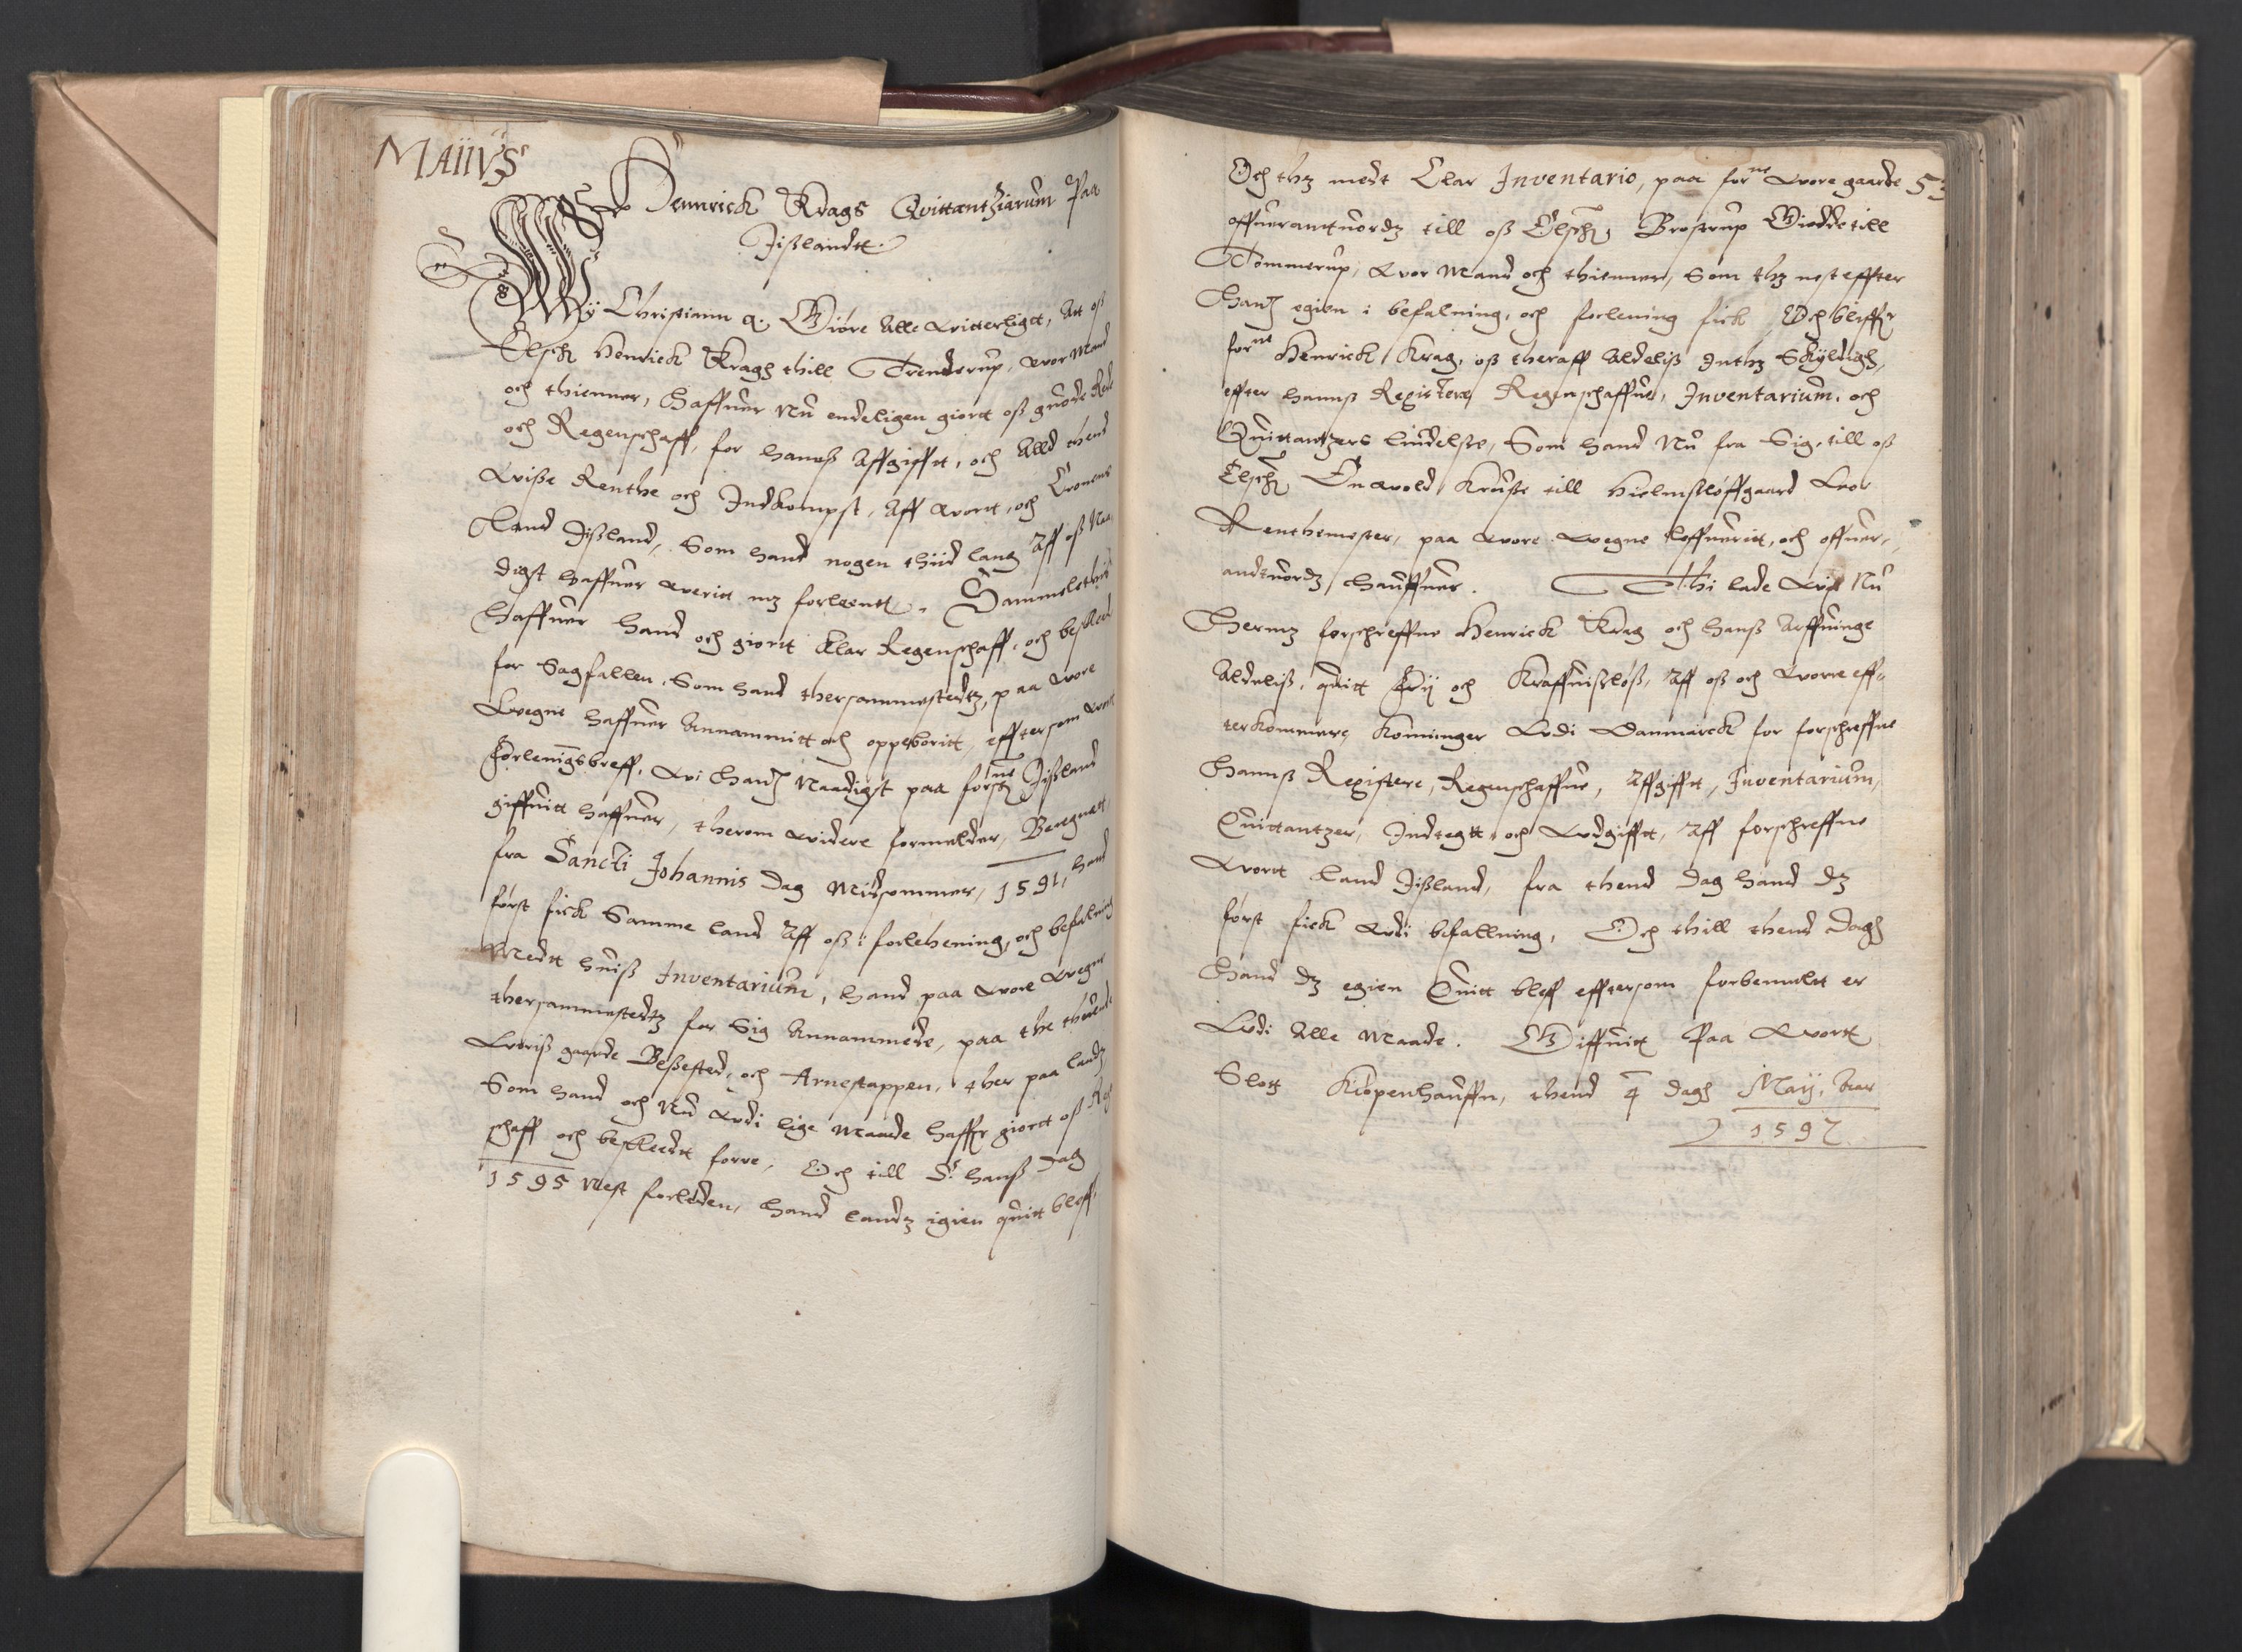 MAIIVS
Henrick Krags Qvittanthiarum Paa
Jißlandtt.
Wÿ Christiann 4. Giøre Alle Witterligtt, Att oß
Elsch: Henrick Kragh thill Trenderup, Wor Mand
och thienner, Haffuer Nu endeligen giortt oß guode Rede
och Regenschaff, for hannß Affgifft, och Alld thend
Wiße Renthe och Indkompst, Aff Wortt, och Cronens
Land Jißland, Som hand nogen thiid lang Aff oß Naa-
digst haffuer Weritt mz forleentt. Sammeledis
haffuer hand och giortt klar Regenschaff, och besked
for Sagfallen, Som hand thersammestedtz, paa Wore
Wegne haffuer Annammitt och oppeboritt, efftersom Wortt
Forleningsbreff, Wi hand Naadigst paa forne Jißland
giffuitt haffuer, therom Widere formelder, Beregnett
fra Sancti Johannis Dag Midsommer, 1591, hand
først fick Samme land Aff oß i forlehening, och befalning
Medtt huiß Inventarium, hand paa Wore Wegne
thersammestedtz for Sig Annammede, paa the thuende
Woriß gaarde Beßested, och Arnestappen, ther paa landz
Som hand och Nu Wdi lige Maade haffr giortt oß Reg
schaff och beskeedtt forre, Och till S. Hanß Dag
1595 Nest forleden, hand landz igien quitt bleff,
Och thz medt Clar Inventario, paa forne Wore gaarde 53
offuerantuordz till oß Elsch: Brostrup Giedde till
Tommerup, Wor Mand och thienner, Som thz nest effter
hand igien i befalning, och forlening fick, Och bliffr
forne Henrick Krag, oß theraff Aldeliß Inthz Skÿldigh,
effter hannß Registere Regenschaffue, Inventarium, och
Quittantzers liudelße, Som hand Nu fra Sig, till oß
Elsch: Enevold Kruße till Hielmsløffgaard Wor
Renthemester, paa Wore Wegne leffueritt, och offuer-
andtuordz hauffuer. Thi lade Wij Nu
Hermz forschreffne Henrick Krag och hanß Arffuinge
Aldeliß, quitt Frÿ och Kraffuißløß, Aff oß och Worre eff-
terkommere Konninger Wdi Danmarck for forschreffne
hannß Registere, Regenschaffue, Affgifft, Inventarium,
Quittantzer, Indtegtt och Wdgifft, Aff forschreffne
Wortt Land Jißland, fra thend Dag hand dz
først fick Wdi befallning, Och thill thend Dagh
hand dz igien Quitt bleff efftersom forbemelt er
Wdi Alle Maade. Giffuitt Paa Wortt
Slott Kiøpenhauffn, thend 4 Dagh Maÿ, Aar
1597